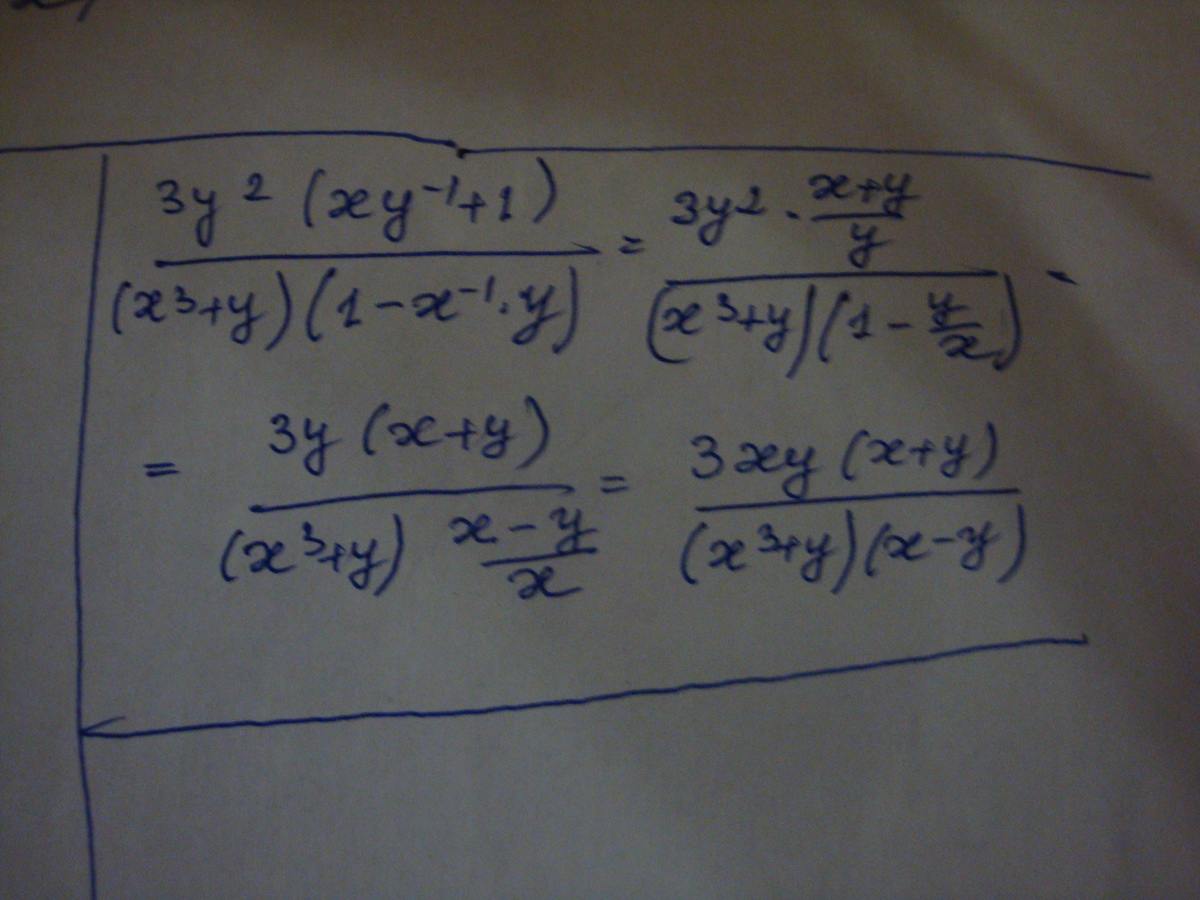 3y² (xy⁻¹+1) / (x³+y)(1-x⁻¹·y) = 3y² · (x+y)/y / (x³+y)(1 - y/x) -
= 3y (x+y) / (x³+y) (x-y)/x = 3xy (x+y) / (x³+y)(x-y)